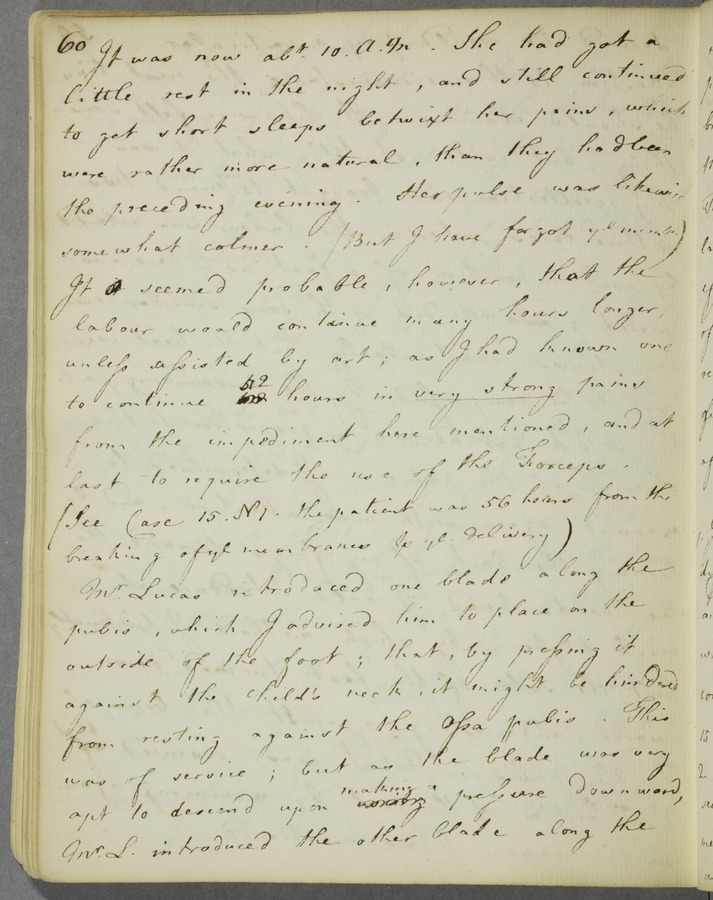 60 It was now abt. 10. A.M. She had got a
little rest in the night, and still continued
to get short sleeps betwixt her pains, which
were rather more natural, than they had been
the preceding evening. Her pulse was likewise
somewhat calmer. (But I have forgot ye. numbr.)
It seemed probable, however, that the
labour would continue many hours longer,
unless assisted by art; as I had known one
to continue 52 hours in very strong pains
from the impediment here mentioned, and at
last to require the use of the Forceps.
(See Case 15. No 1. the patient was 56 hours from the
breaking of ye. membranes to ye. delivery)
Mr. Lucas introduced one blade along the
pubis, which I advised him to place on the
outside of the foot; that, by pressing it
against the child's neck, it might be hindered
from resting against the Ossa pubis. This
was of service; but as the blade was very
apt to descend upon making a pressure downward,
Mr. L. introduced the other blade along the